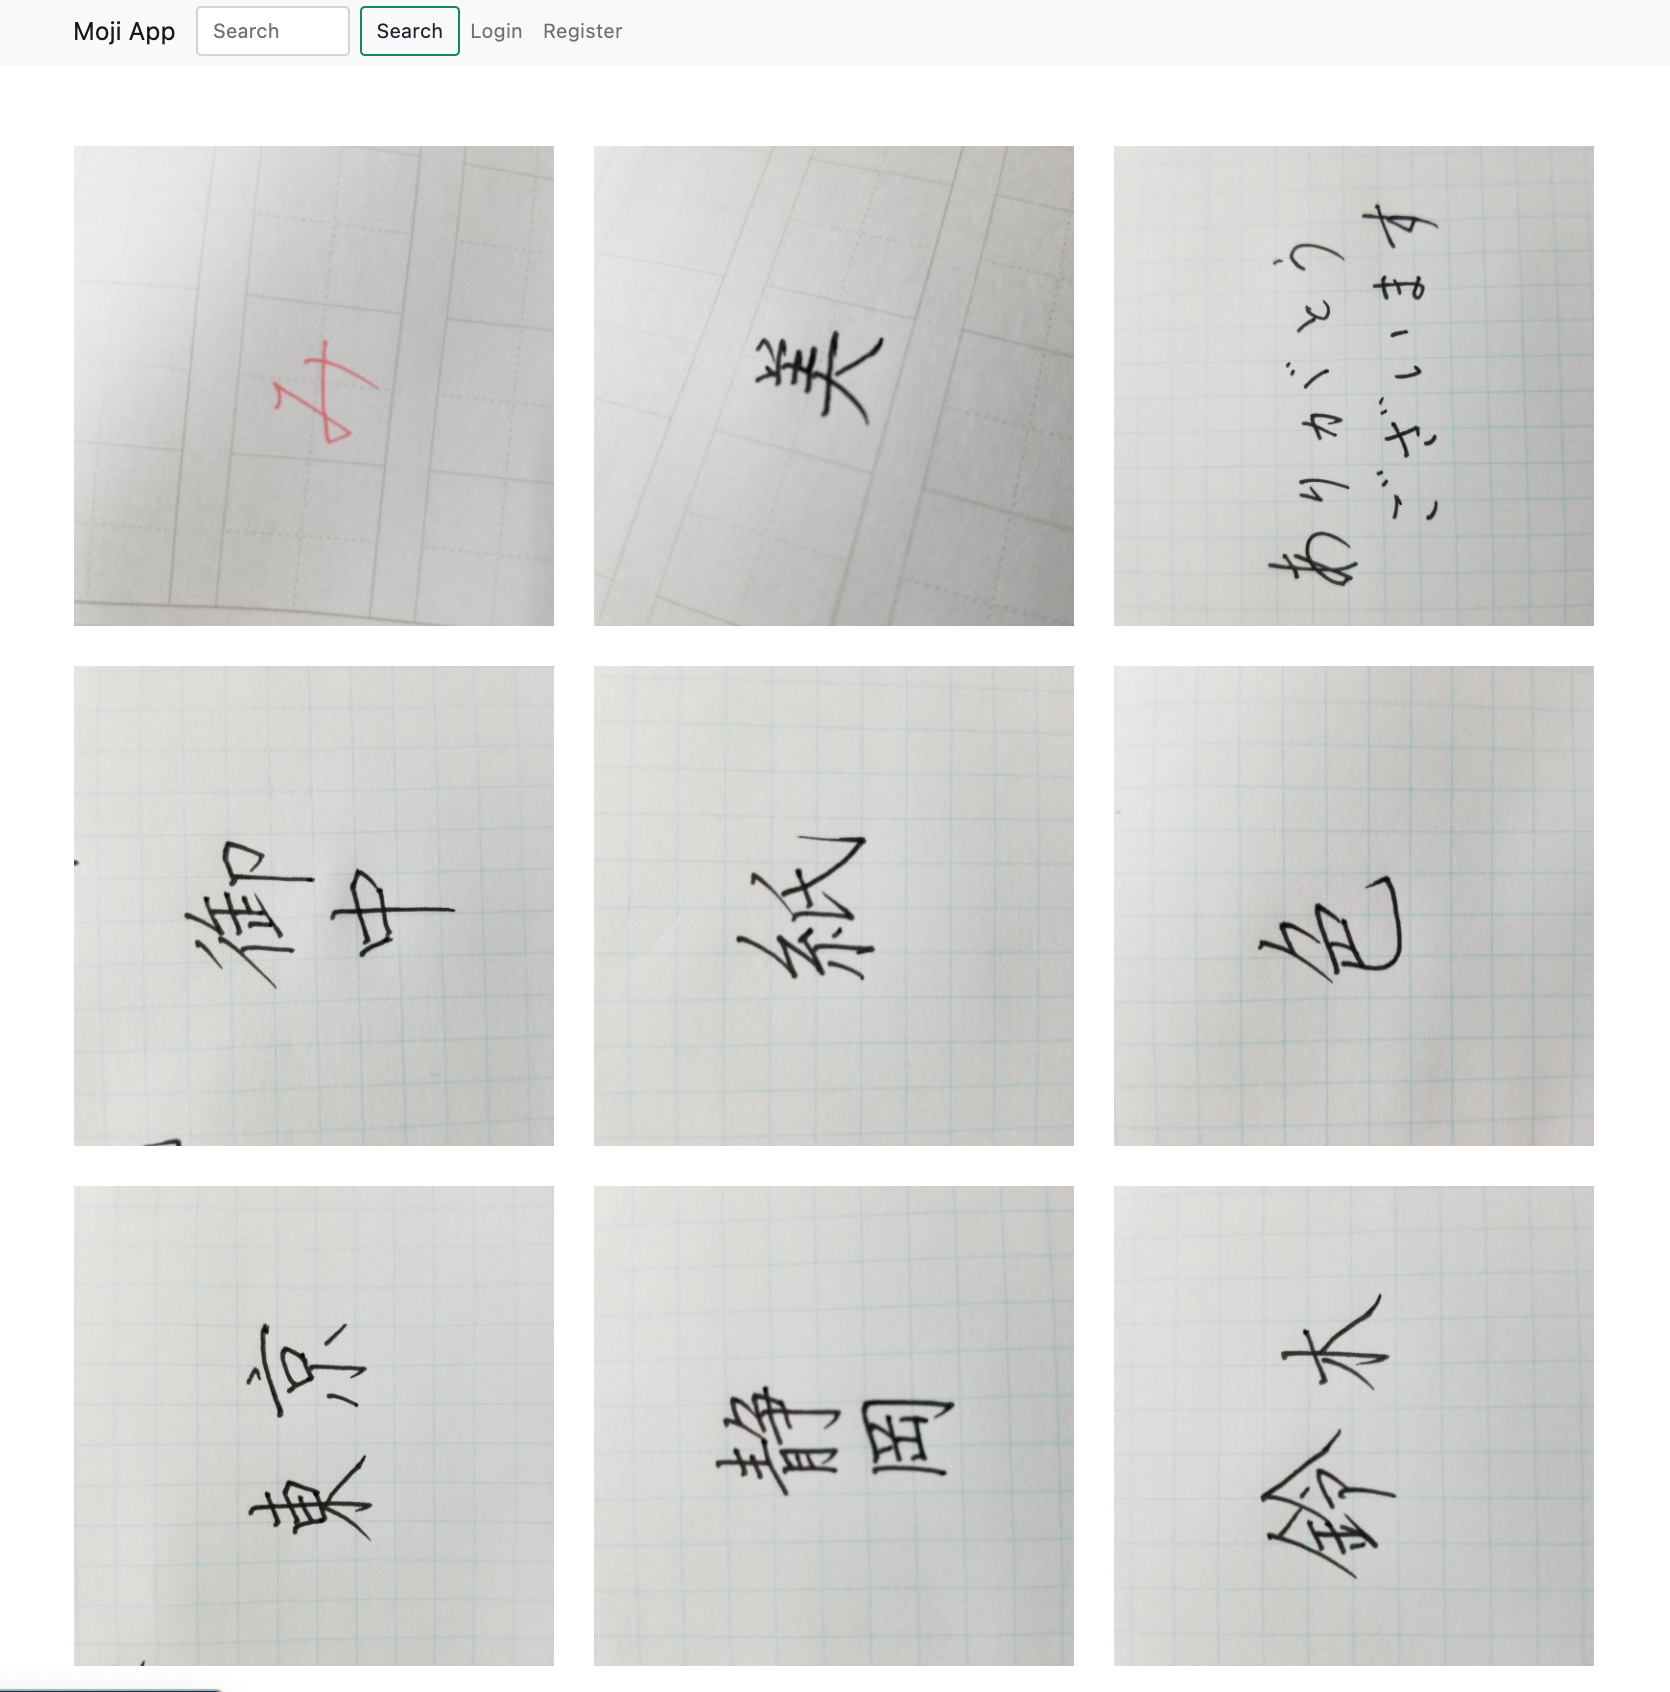 Moji App
Search
Search
Login
Register
み
美
ありがとう
ございます
御中
紙
色
東京
静岡
鈴木